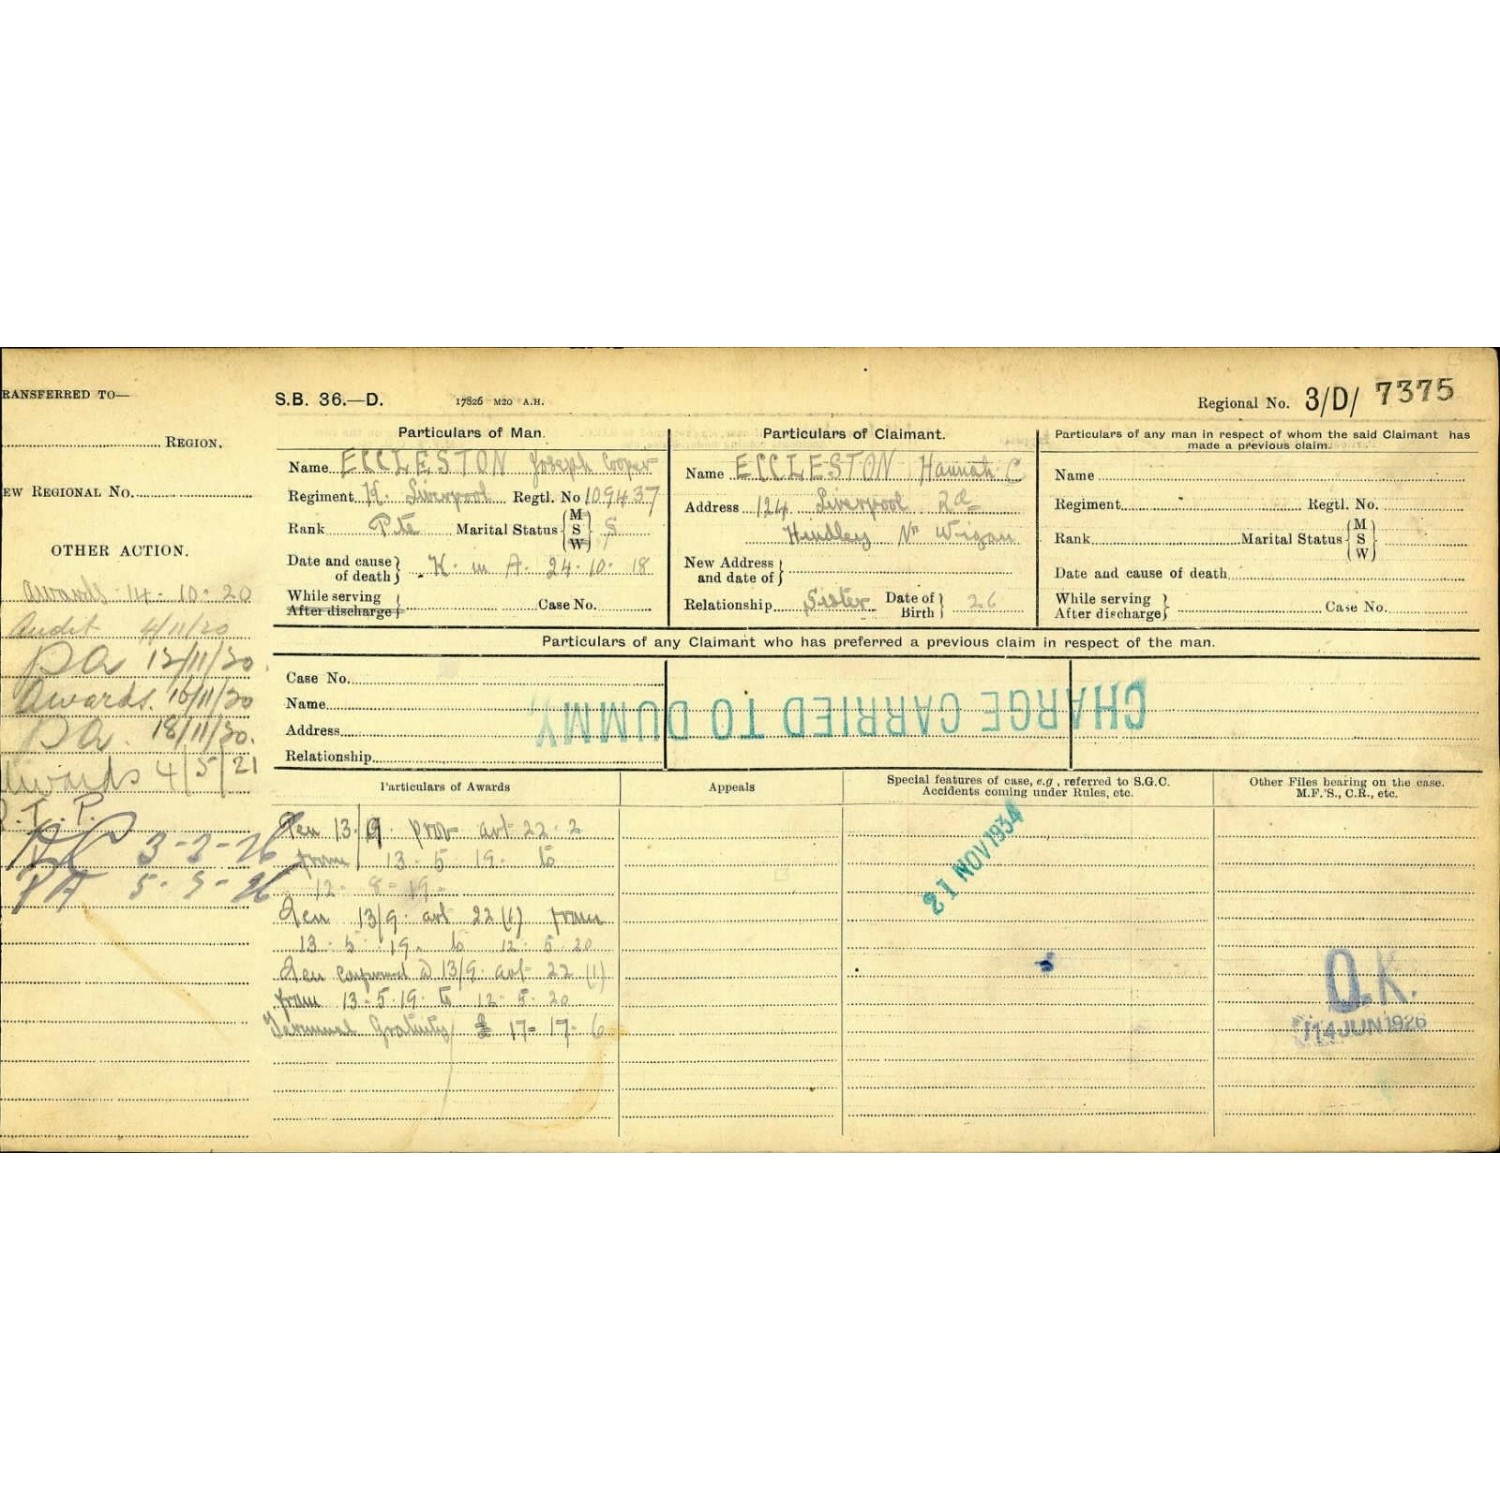 RANSFERRED TO—
REGION.
EW REGIONAL No.
OTHER ACTION.
Awards 14-10-20
Audit 4/11/20
PA 12/11/20.
Awards. 16/11/20
PA. 18/11/20.
Awards 4/5/21
3-3-26
PA 5-3-26
S.B. 36.—D. 17826 M20 A.H.
Regional No. 3/D/ 7375
Particulars of Man.
Name ECCLESTON Joseph Cooper
Regiment K. Liverpool Regtl. No 109437
Rank Pte Marital Status {M S W} S
Date and cause of death} K. in A. 24.10.18
While serving
After discharge} Case No.
Particulars of Claimant.
Name ECCLESTON Hannah C
Address 124 Liverpool Rd
Hindley Nr Wigan
New Address and date of}
Relationship Sister Date of Birth} 26
Particulars of any man in respect of whom the said Claimant has
made a previous claim.
Name
Regiment Regtl. No.
Rank Marital Status {M S W}
Date and cause of death
While serving
After discharge} Case No.
Particulars of any Claimant who has preferred a previous claim in respect of the man.
Case No.
Name
Address
Relationship
CHARGE CARRIED TO DUMMY.
Particulars of Awards
Pen 13/9. prov art 22.2
from 13.5.19. to
12-8-19-
Pen 13/9. art 22 (1) from
13.5.19. to 12.5.20
Pen Confirmed @ 13/9. art 22 (1)
from 13-5.19. to 12-5-20
Terminal Gratuity £17-17-6
Appeals
Special features of case, e.g., referred to S.G.C.
Accidents coming under Rules, etc.
21 NOV 1934
Other Files bearing on the case.
M.F.'S., C.R., etc.
O.K.
14 JUN 1926